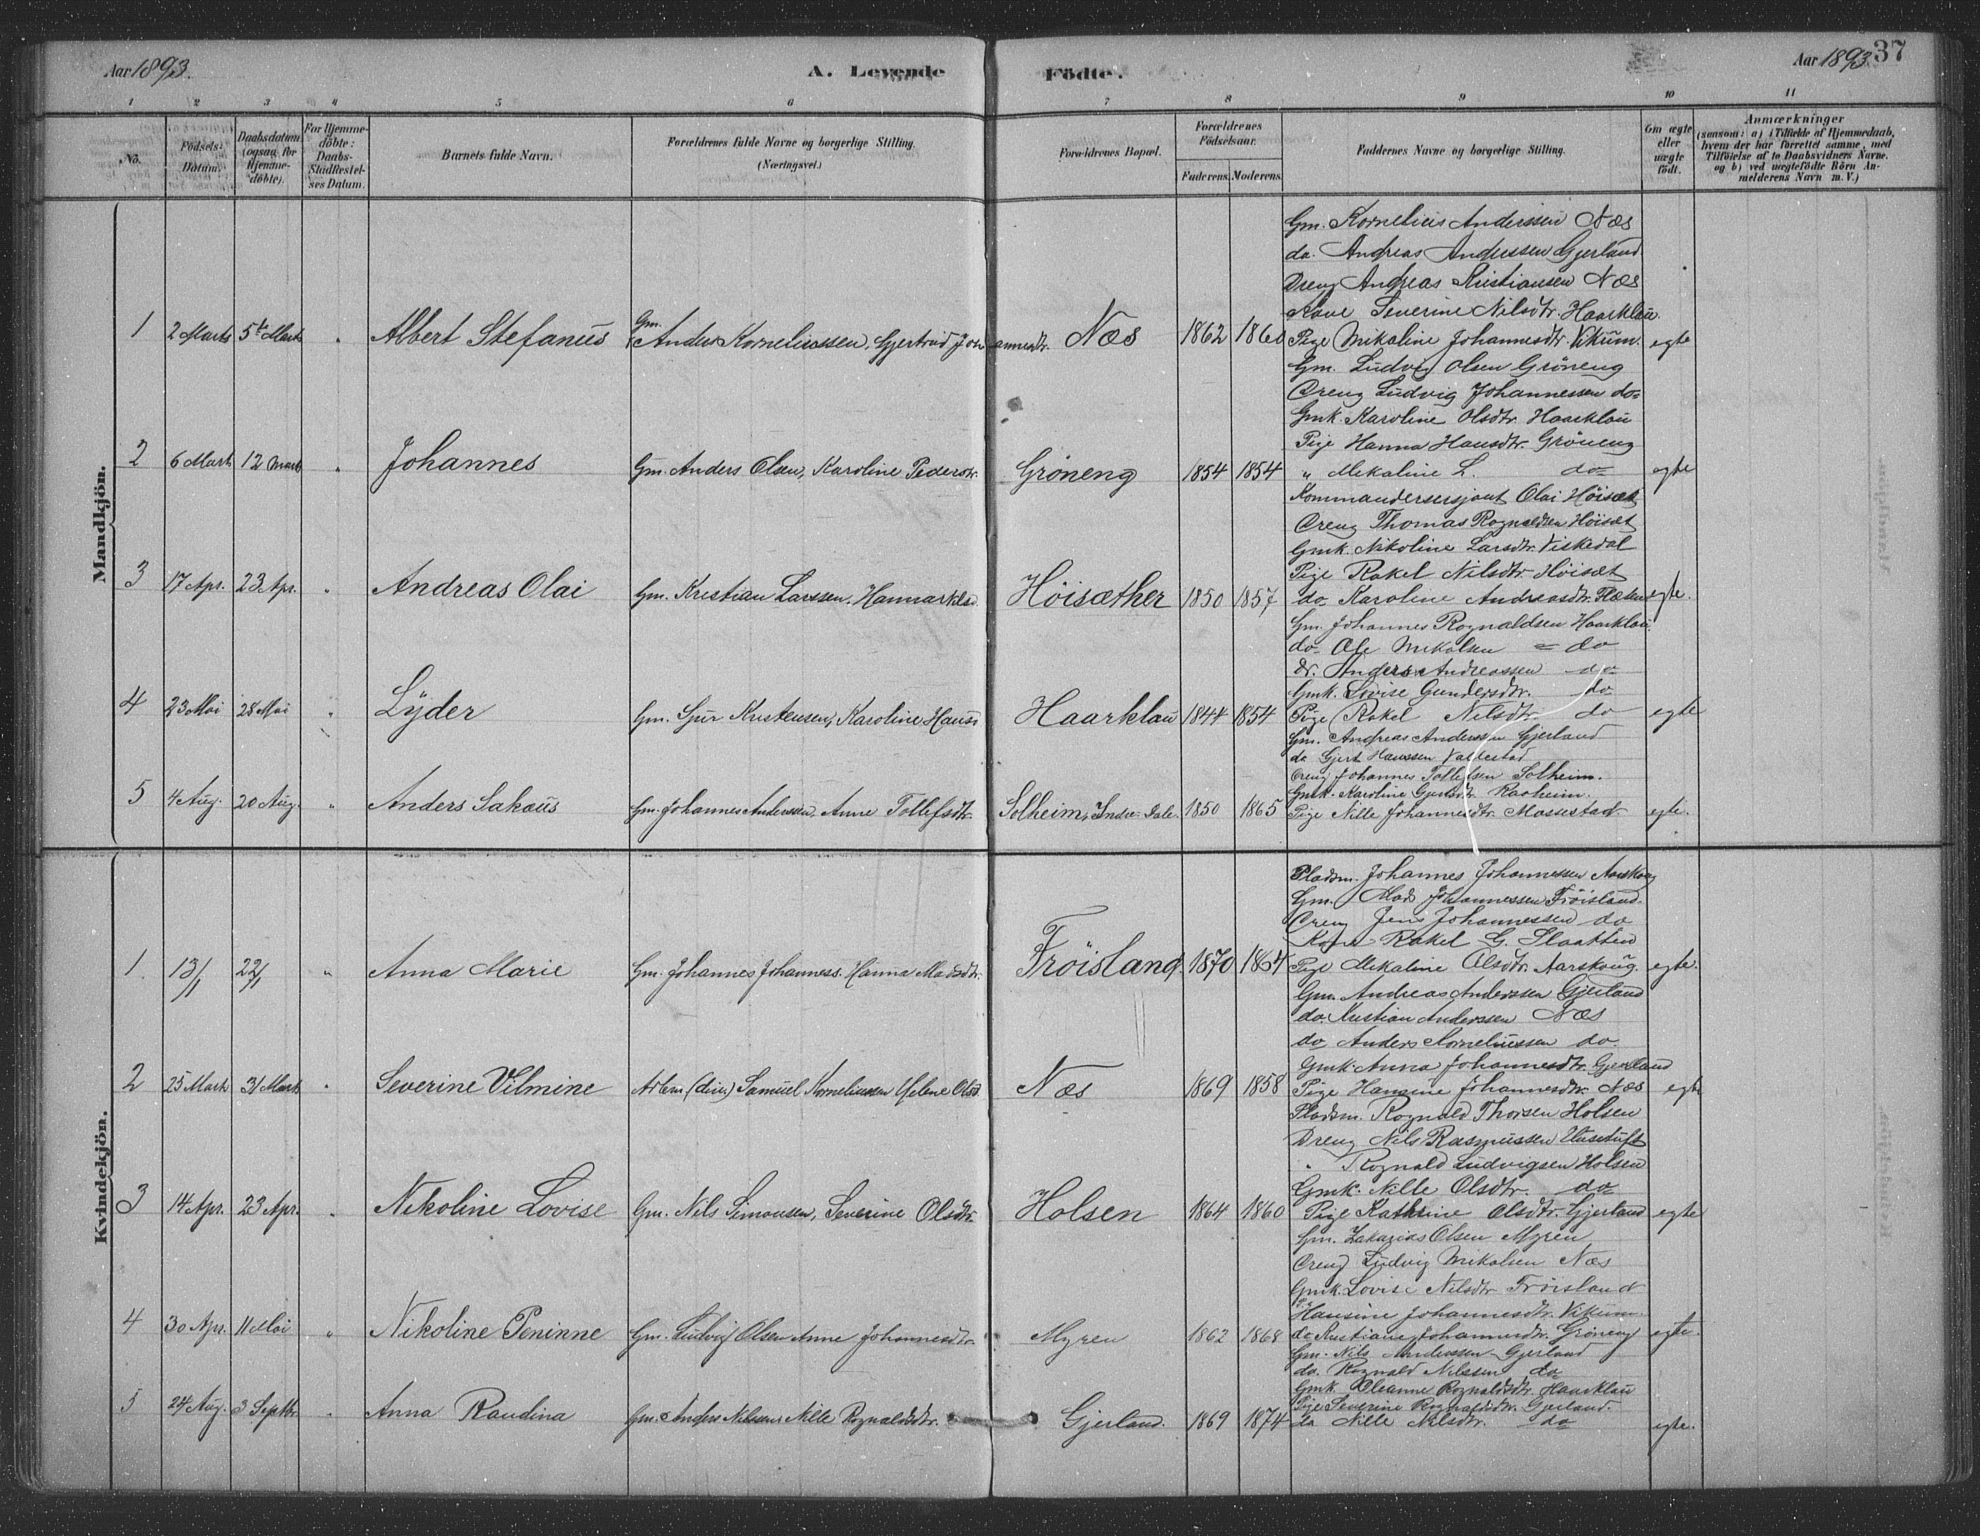 Aar 1893.
A. Levende Födte.
Aar 1893 37
1 2 3 4 5 6 7 8 9 10 11
No.
Födsels-Datum.
Daabsdatum (ogsaa for Hjemmedöbte).
For Hjemmedöbte: Daabs-Stadfæstelses Datum.
Barnets fulde Navn.
Forældrenes fulde Navne og borgerlige Stilling. (Næringsvei.)
Forældrenes Bopæl.
Forældrenes Födselsaar.
Faderens. Moderens.
Faddernes Navne og borgerlige Stilling.
Om ægte eller uægte födt.
Anmærkninger
(saasom: a) i Tilfælde af Hjemmedaab, hvem der har forrettet samme, med Tilföielse af to Daabsvidners Navne. og b) ved uægtefödte Börn Anmelderens Navn m. V.)
Mandkjön.
Gm. Kornelius Anderssen Næs
do. Andreas Anderssen Gjerland
Dreng Andreas Kristiansen Næs
Kone Severine Nilsdtr. Haarklau
1 2 Marts 5te Marts " Albert Stefanus Gm. Anders Korneliussen, Gjertrud Johannesdtr. Næs 1862 1860 Pige Mikaline Johannesdtr. Vikum. egte
Gm. Ludvig Olsen Gröneng
Dreng Ludvig Johannessen do-
Gmk. Karoline Olsdtr. Haarklau
Pige Hanna Hansdtr. Gröneng
2 6 Marts 12 Marts " Johannes Gm. Anders Olsen, Karoline Pedersdtr. Gröneng 1854 1854 " Mekaline L. do- egte
Kommandersersjant Olai Höisæt
Dreng Thomas Rognaldsen Höisæt
Gmk. Nikoline Larsdtr. Viskedal
Pige Rakel Nilsdtr. Höisæt
3 17 Apr. 23 Apr. " Andreas Olai Gm. Kristian Larssen, Höisæther 1850 1857 do. Karoline Andreasdtr. egte.
Gm. Johannes Rognaldsen Haarklau
do- Ole Mikalsen = do
Anders Andreassen do-
Gmk. Lovise Gundersdtr. do
4 23 Mai 28 Mai " Lÿder Gm. Kristensen, Karoline Hansd Haarklau 1844 1854 Pige Rakel Nilsdtr. do egte
Gm. Andreas Anderssen Gjerland
do Gjert Hanssen Vallestad
Dreng Johannes Tollefsen Solheim.
Gmk. Karoline
5 4 Aug. 20 Aug. " Anders Sakaüs Gm. Johannes Anderssen, Anne Tollefsdtr. Solheim, Indre-Dale 1850 1865 Pige Nille Johannesdtr. Massestad egte.
Kvindekjön.
Pladsm. Johannes Johannessen Aarskoug
Gm. Mads Johannessen Fröisland.
Dreng Jens Johannessen do
Kone Rakel G. Slaatten
1 13/1 22/1 " Anna Marie Gm. Johannes Johanness. Hanna Madsdtr. Fröisland. 1870 1864 Pige Mekaline Olsdtr. Aarskoug. egte.
Gm. Andreas Anderssen Gjerland
do. Kristian Anderssen Næs
do Anders Korneliussen do.
Gmk. Anna Johannesdtr. Gjerland
2 25 Marts 31 Marts " Severine Vilmine Arbm. Samuel Korneliussen Helene Olsd. Næs 1869 1858 Pige Hansine Johannesdtr. Næs egte
Pladsm. Rognald Thorsen Holsen
Dreng Nils Rasmussen Husetuft
" Rognald Ludvigsen Holsen
Gmk. Nille Olsdtr. do
3 14 Apr. 23 Apr. " Nikoline Lovise Gm. Nils Simonsen, Severine Olsdtr. Holsen 1864 1860 Pige Kathrine Olsdtr. Gjerland egte
Gm. Zakarias Olsen Myren
Dreng Ludvig Mikalsen Næs
Gmk. Lovise Nilsdtr. Fröisland
Hansine Johannesdtr. Vikum
4 30 Apr. 11 Mai " Nikoline Peninne Gm. Ludvig Olsen Anne Johannesdtr. Myren 1862 1868 do Kristiane Johannesdtr. Gröneng egte.
Gm. Nils Anderssen Gjerland
do. Rognald Nilssen do
Gmk. Oleanne Rognaldsdtr. Haarklau
Pige Severine Rognaldsdtr. Gjerland.
5 24 Aug. 3 Septbr. " Anna Raudina Gm. Anders Nilssen, Nille Rognaldsdtr. Gjerland. 1869 1874 do Nille Nilsdtr. do egte.